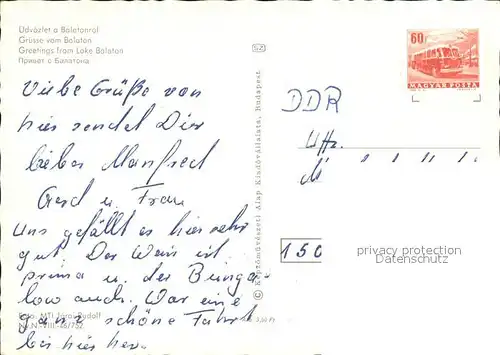 Üdvözlet a Balatonról
Grüsse vom Balaton
Greetings from Lake Balaton
Привет с Балатона
60
MAGYAR POSTA
Viele Grüße von
hier sendet Dir
lieber Manfred
Gerd u. Frau
Uns gefällt es hier sehr
gut. Der Wein ist
prima u. der Bunga-
low auch. War eine
ganz schöne Fahrt
bis hier her.
Foto: MTI Járai Rudolf
© Képzőművészeti Alap Kiadóvállalata, Budapest
DDR
150
privacy protection
Datenschutz